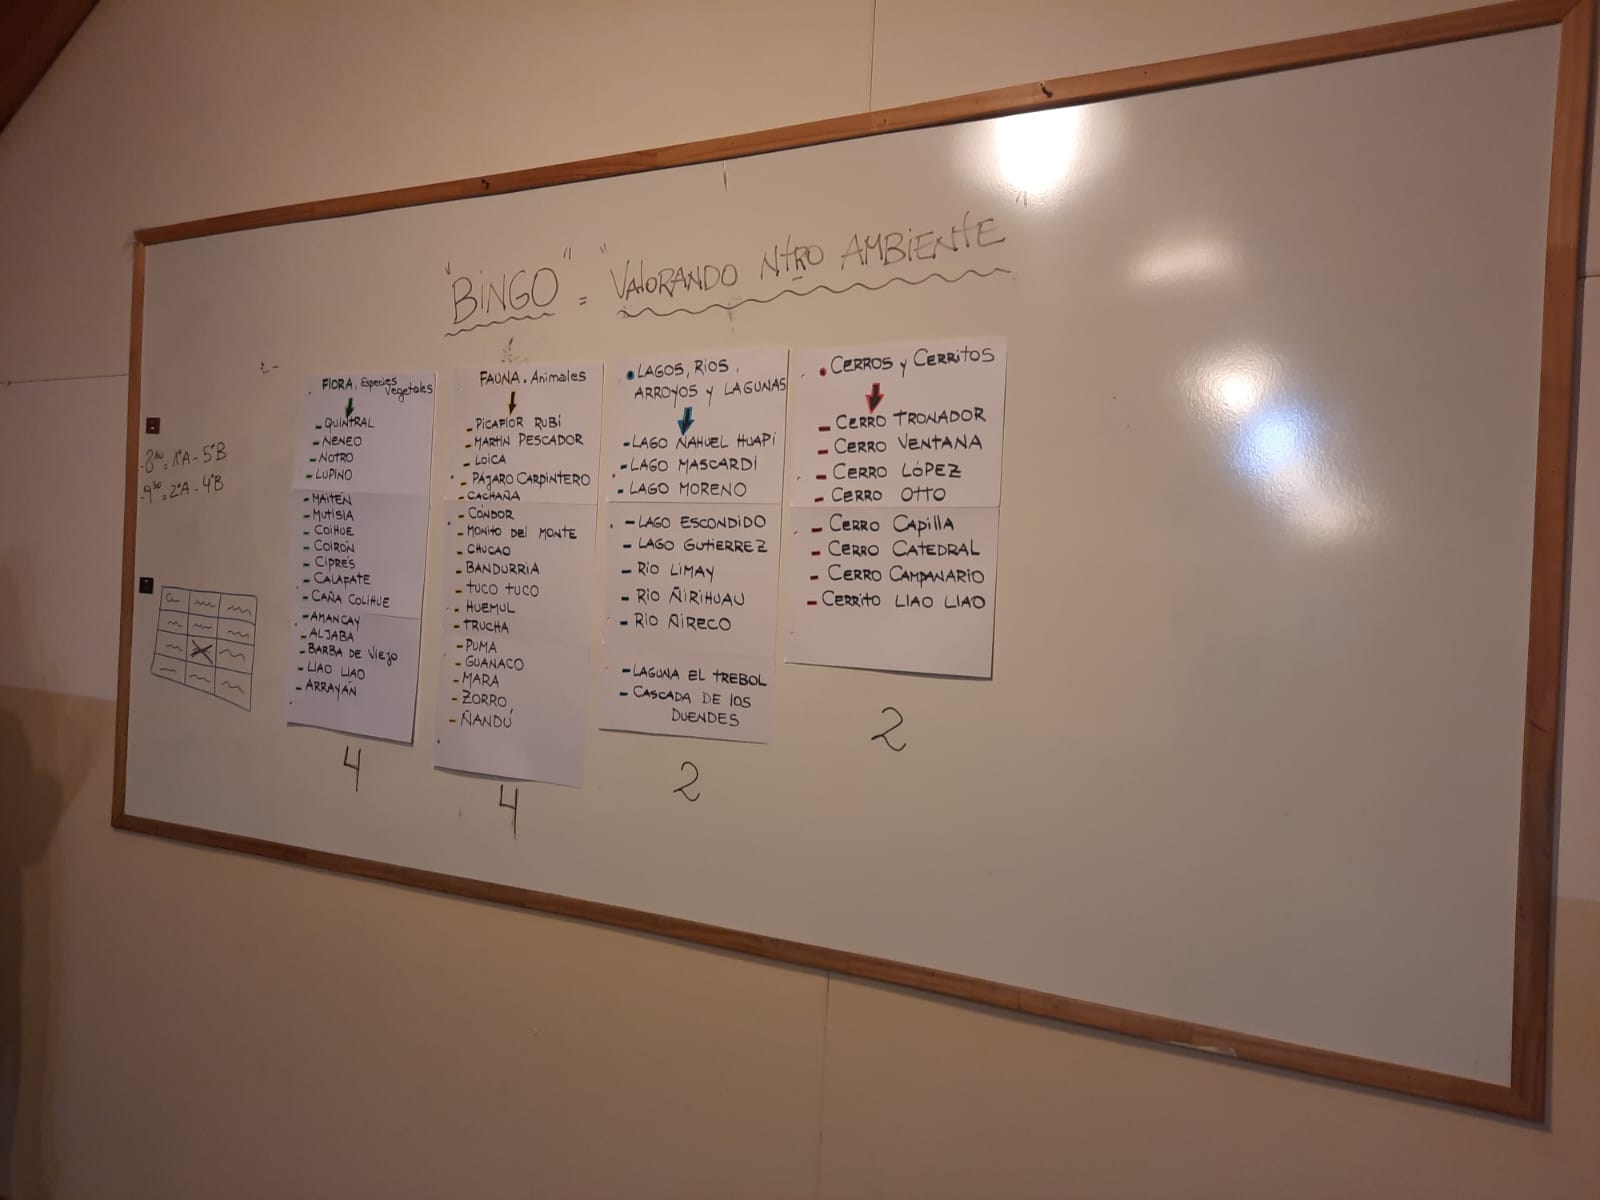 "BINGO" = "VALORANDO NTRO AMBIENTE"
- 8 = 1°A - 5°B
- 9³⁰ = 2°A - 4°B
FLORA. Especies Vegetales
- QUINTRAL
- NENEO
- NOTRO
- LUPINO
- MAITÉN
- MUTISIA
- COIHUE
- COIRÓN
- CIPRÉS
- CALAFATE
- CAÑA COLIHUE
- AMANCAY
- ALJABA
- BARBA DE VIEJO
- LLAO LLAO
- ARRAYÁN
4
FAUNA. Animales
- PICAFLOR RUBÍ
- MARTIN PESCADOR
- LOICA
- PÁJARO CARPINTERO
- CACHAÑA
- CÓNDOR
- MONITO DEL MONTE
- CHUCAO
- BANDURRIA
- TUCO TUCO
- HUEMUL
- TRUCHA
- PUMA
- GUANACO
- MARA
- ZORRO
- ÑANDÚ
4
• LAGOS, RÍOS,
ARROYOS y LAGUNAS
- LAGO ÑAHUEL HUAPI
- LAGO MASCARDI
- LAGO MORENO
- LAGO ESCONDIDO
- LAGO GUTIERREZ
- RIO LIMAY
- RIO ÑIRIHUAU
- RIO ÑIRECO
- LAGUNA EL TREBOL
- CASCADA DE LOS
DUENDES
2
• CERROS y CERRITOS
- CERRO TRONADOR
- CERRO VENTANA
- CERRO LÓPEZ
- CERRO OTTO
- CERRO CAPILLA
- CERRO CATEDRAL
- CERRO CAMPANARIO
- CERRITO LLAO LLAO
2